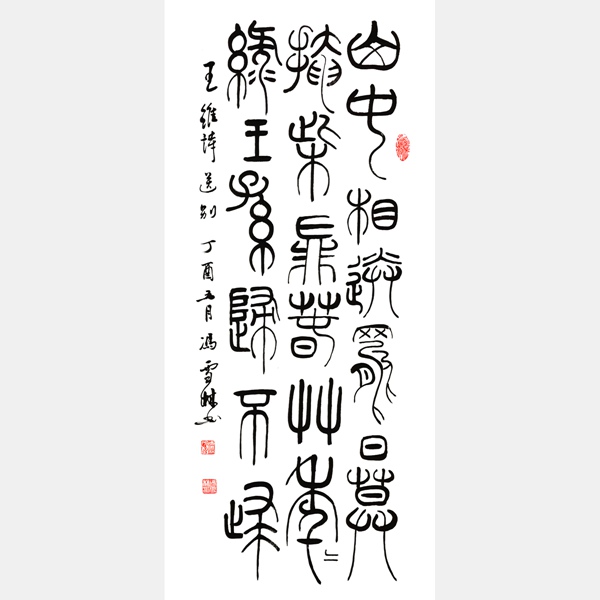 山中相送罷日暮
掩柴扉春草年〻
綠王孫歸不歸
王維詩送别 丁酉五月 馮雪书